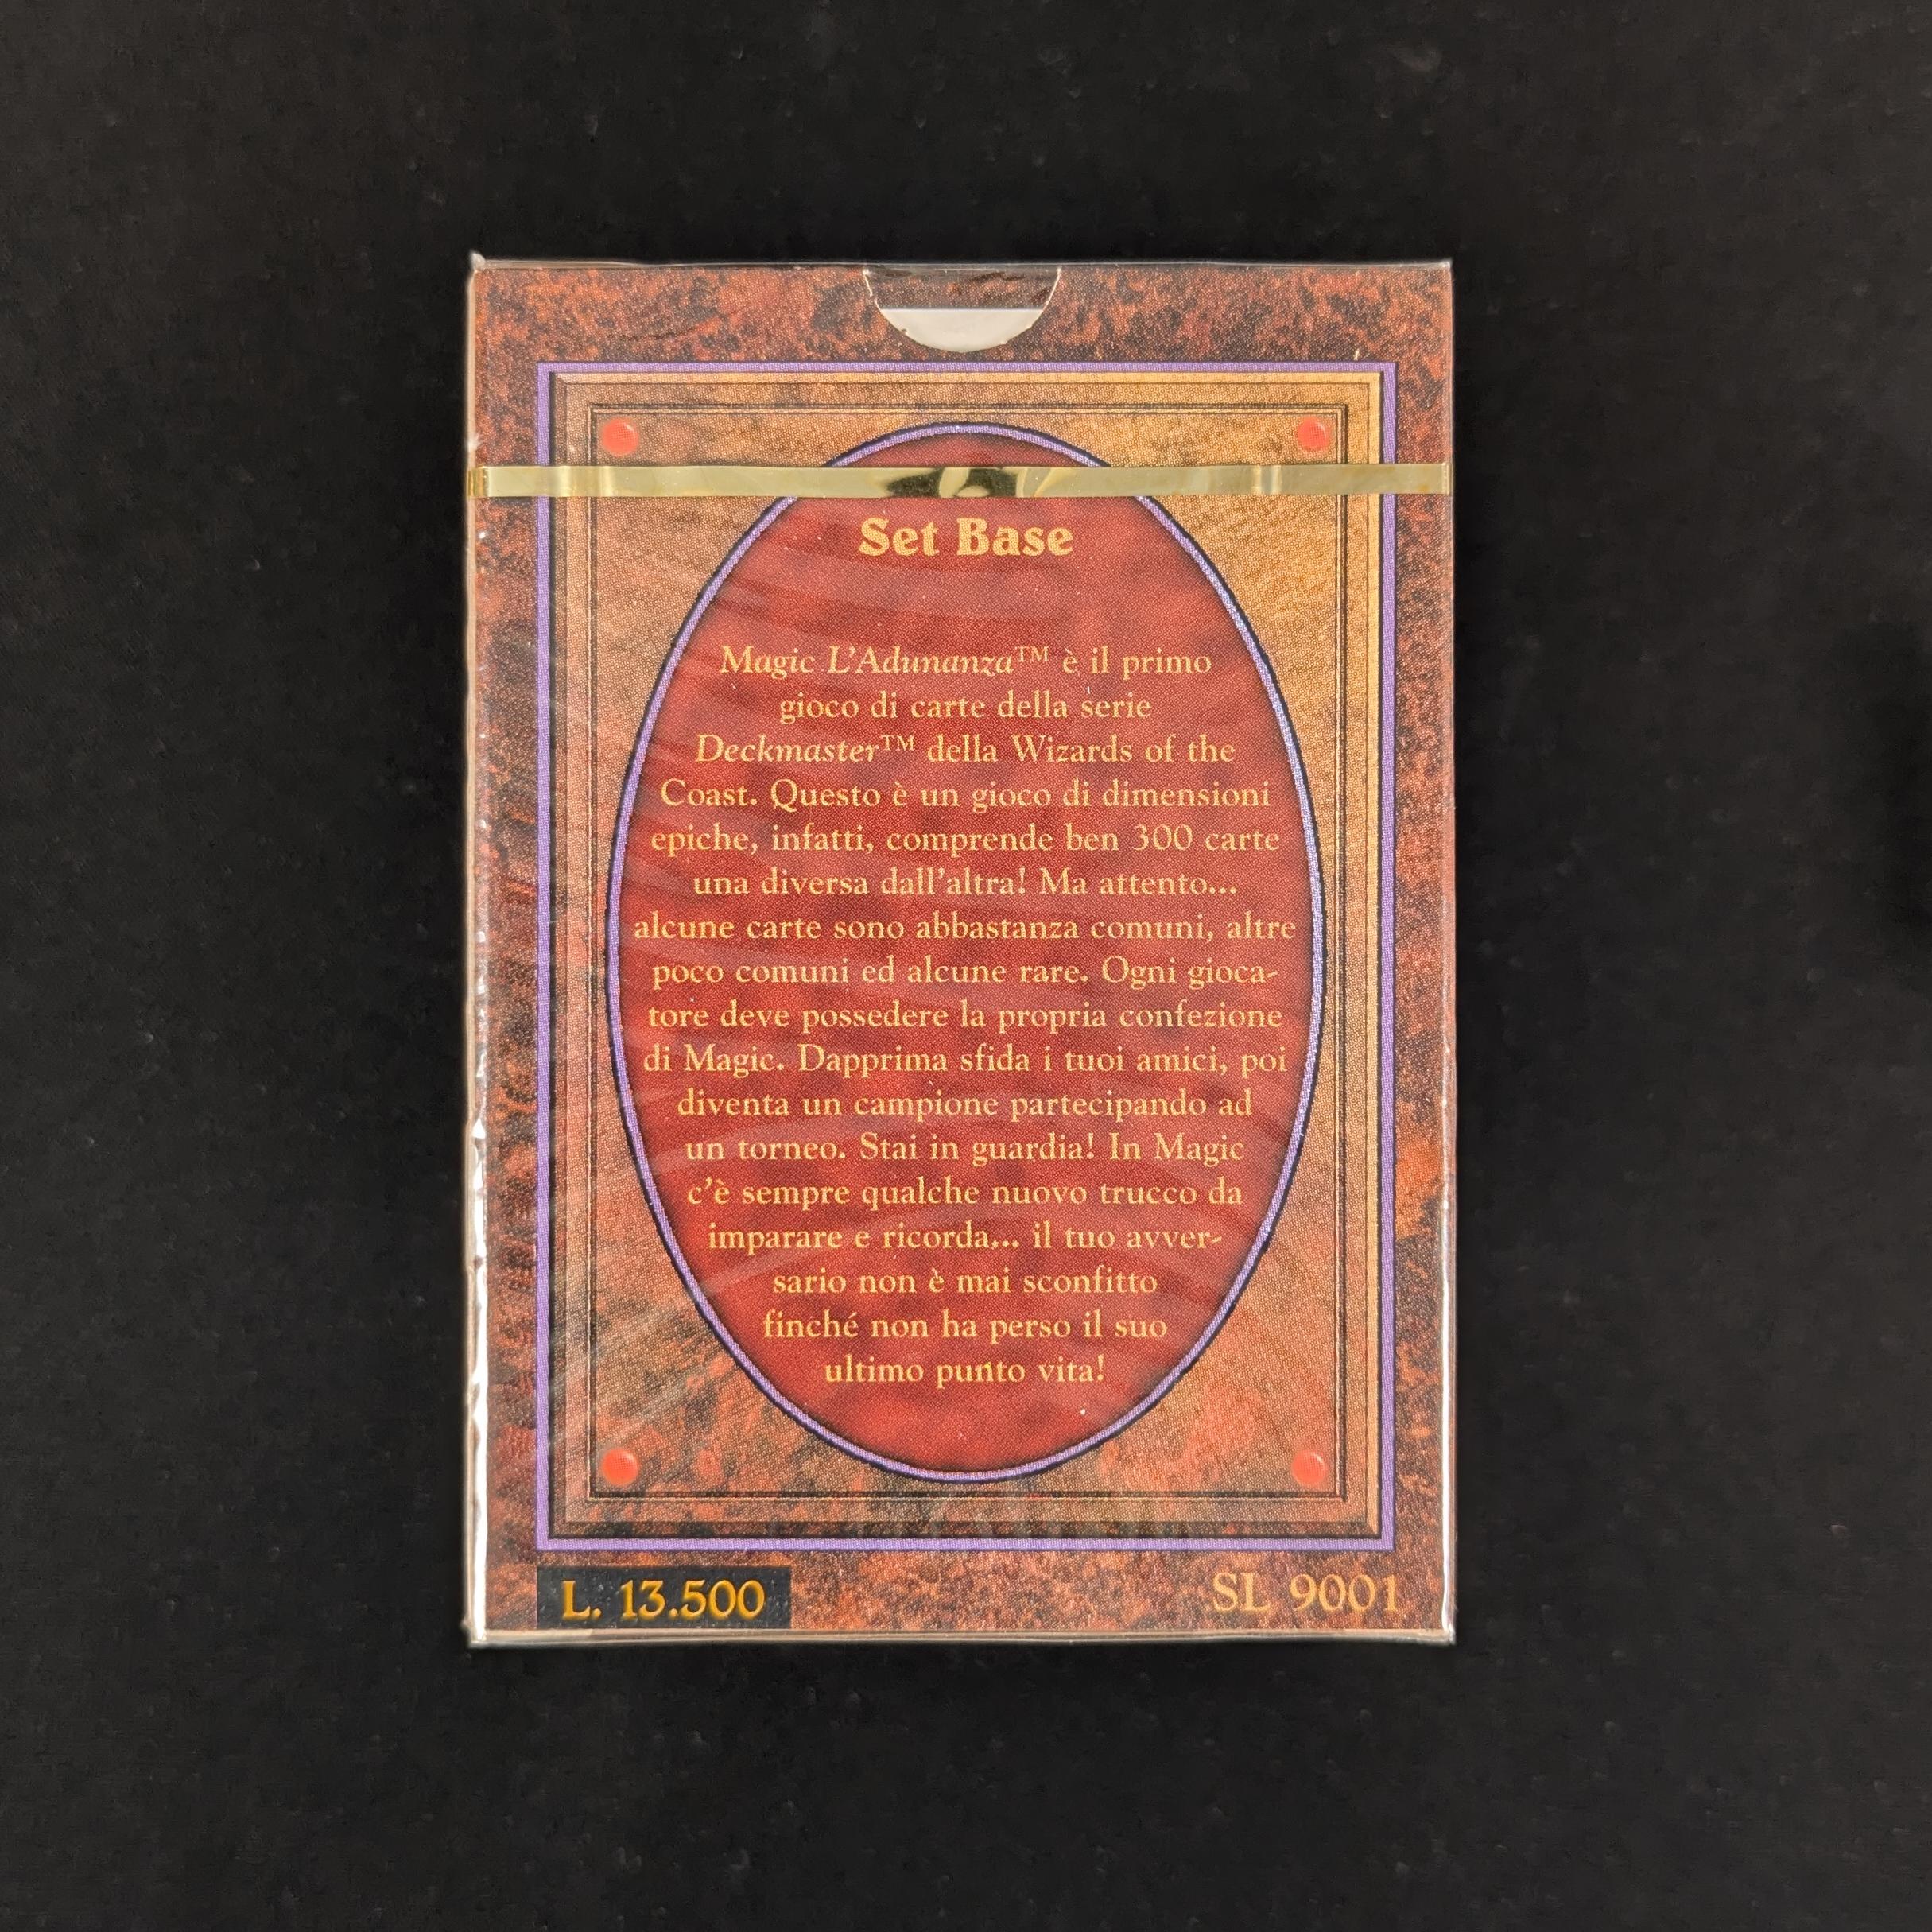 Set Base
Magic L'Adunanza™ è il primo
gioco di carte della serie
Deckmaster™ della Wizards of the
Coast. Questo è un gioco di dimensioni
epiche, infatti, comprende ben 300 carte
una diversa dall'altra! Ma attento...
alcune carte sono abbastanza comuni, altre
poco comuni ed alcune rare. Ogni gioca-
tore deve possedere la propria confezione
di Magic. Dapprima sfida i tuoi amici, poi
diventa un campione partecipando ad
un torneo. Stai in guardia! In Magic
c'è sempre qualche nuovo trucco da
imparare e ricorda... il tuo avver-
sario non è mai sconfitto
finché non ha perso il suo
ultimo punto vita!
L. 13.500
SL 9001